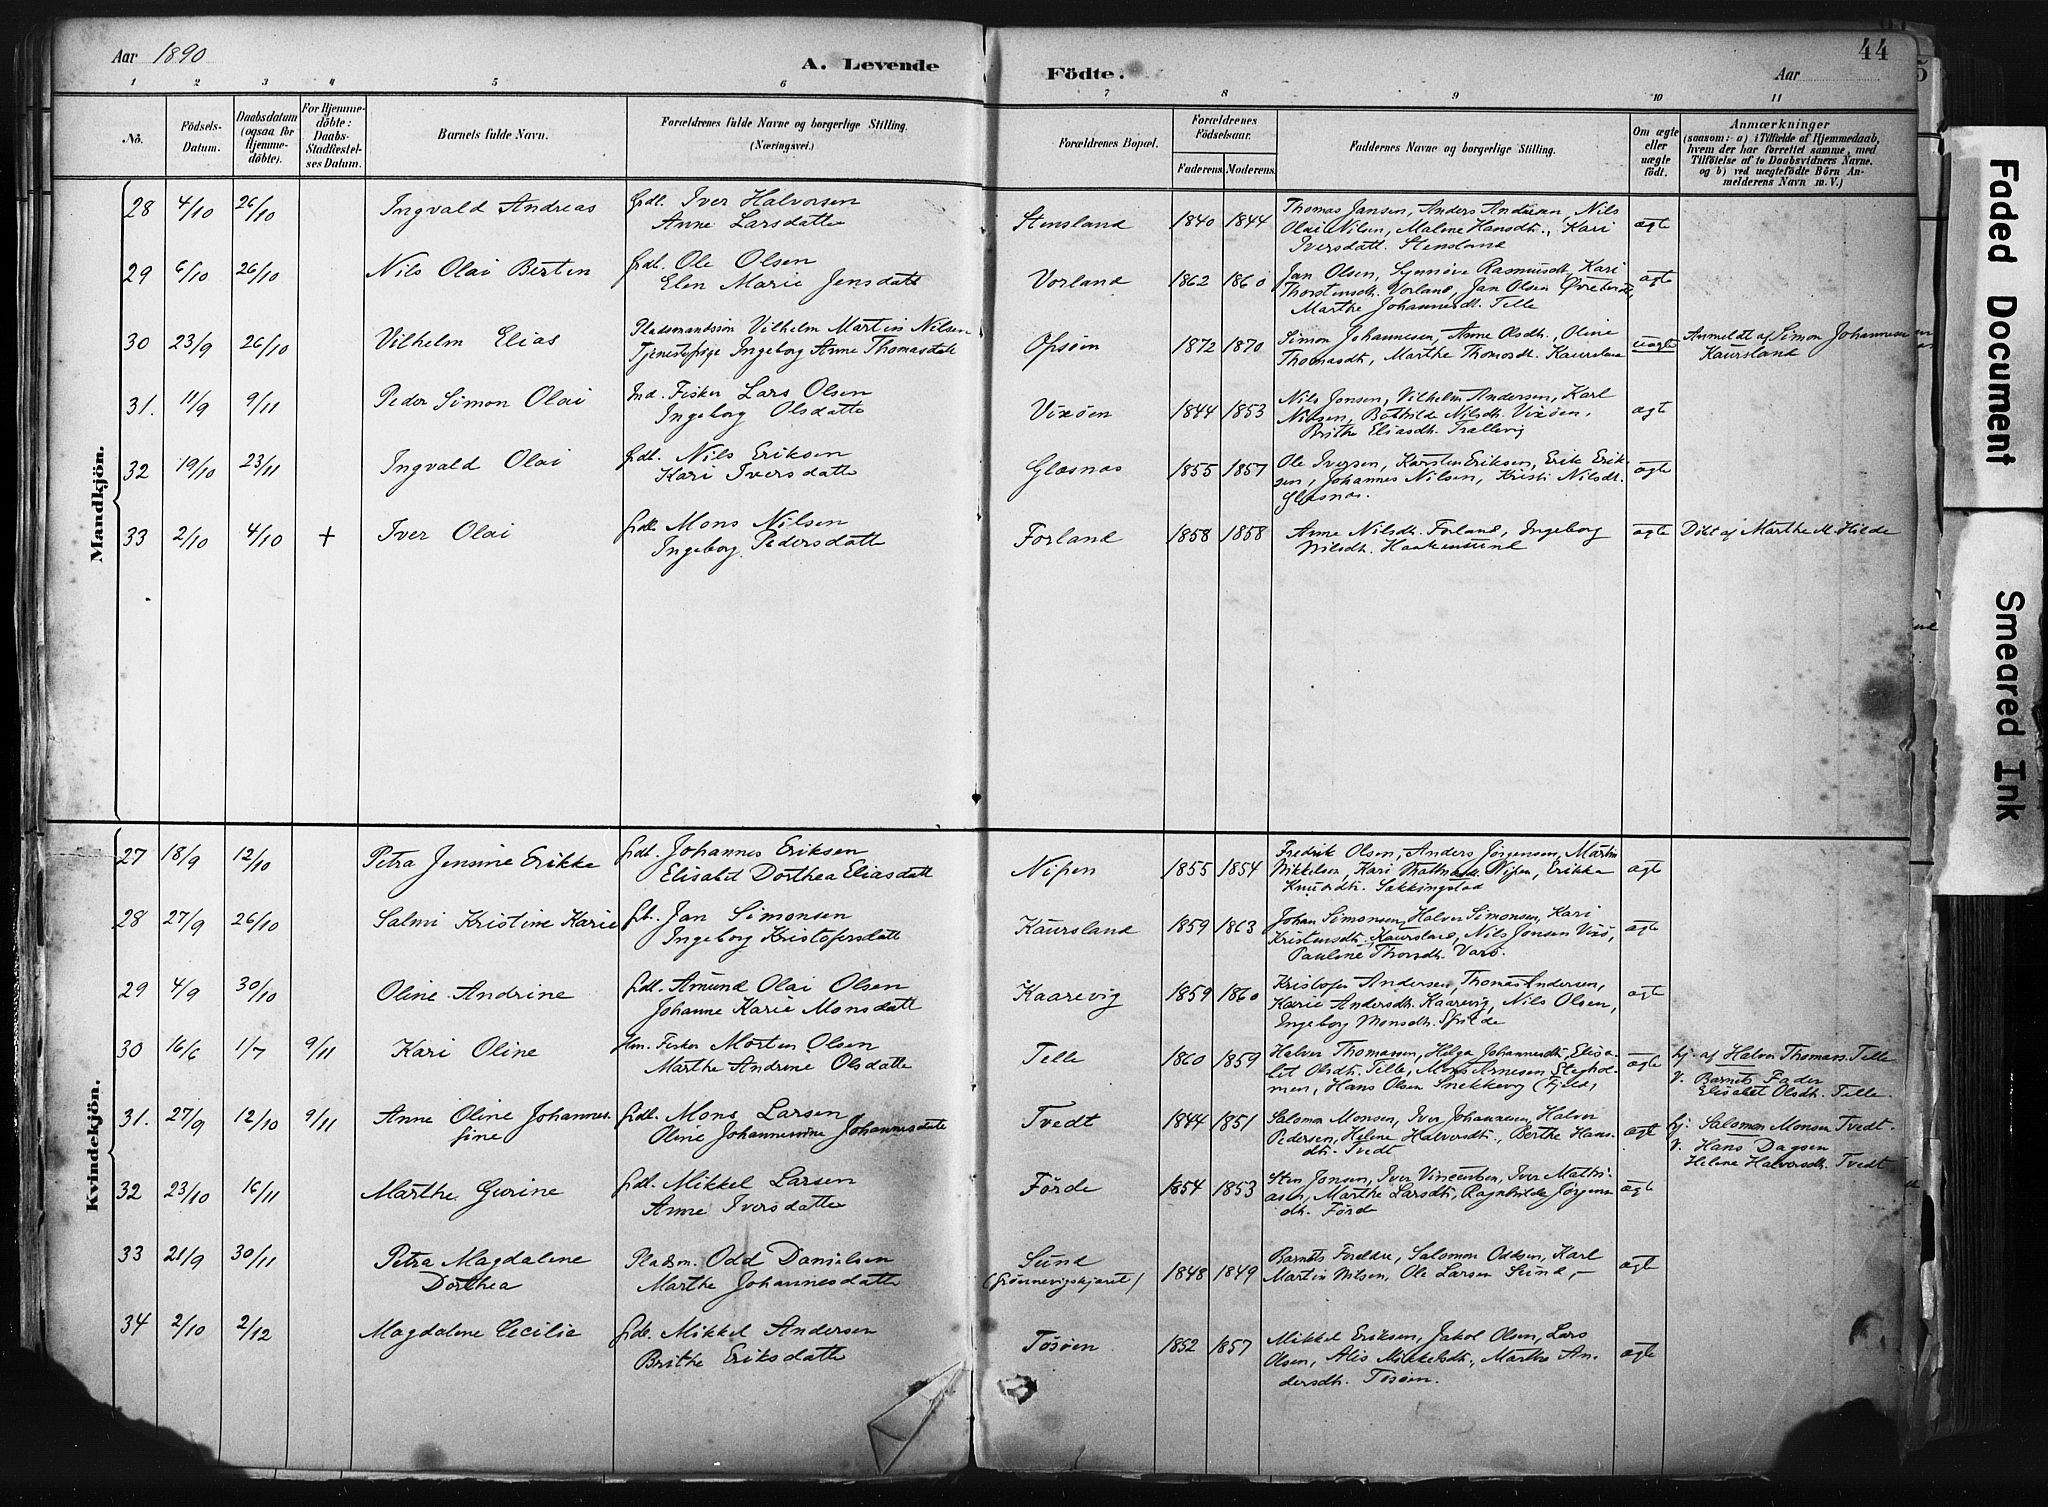 Aar 1890
A. Levende
Födte.
Aar
44
1 2 3 4 5 6 7 8 9 10 11
No.
Födsels-
Datum.
Daabsdatum
(ogsaa for
Hjemme-
döbte).
For Hjemme-
döbte:
Daabs-
Stadfestel-
ses Datum.
Barnets fulde Navn.
Forældrenes fulde Navne og borgerlige Stilling.
(Næringsvei.)
Forældrenes Bopæl.
Forældrenes
Födselsaar.
Faderens Moderens
Faddernes Navne og borgerlige Stilling.
Om ægte
eller
uægte
födt.
Anmærkninger
(saasom: a) i Tilfælde af Hjemmedaab,
hvem der har forrettet samme, med
Tilföielse af to Daabsvidners Navne.
og b) ved uægtefödte Börn An-
melderens Navn m. V.)
Mandkjön.
28 4/10 26/10 Ingvald Andreas grdb. Iver Halvorsen
Anne Larsdatte
Stensland 1840 1844 Thomas Jansen, Anders Andersen, Nils
Olai Nilsen, Malene Hansdt., Kari
Iversdatt. Stensland
ægte
29 6/10 26/10 Nils Olai Berten grdb. Ole Olsen
Elen Marie Jensdatte
Vorland 1862 1860 Jan Olsen, Synnöve Rasmusdt, Kari
Thorstensdt. Vorland, Jan Olsen
Marthe Johannesdt. Telle
ægte
30 23/9 26/10 Vilhelm Elias Pladsmandssön Vilhelm Martin Nilsen
Tjenestepige Ingeborg Anne Thomasdatte
Opsöen 1872 1870 Simon Johannesen, Anne Olsdt., Oline
Thomasdt., Marthe Thomasdt. Kaursland
uægte Anmeldt af Simon Johannesen
Kaursland
31. 11/9 9/11 Peder Simon Olai Ind. Fisker Lars Olsen
Ingeborg Olsdatte
Vixöen 1844 1853 Nils Jonsen, Vilhelm Andersen, Karl
Nilsen, Bothilde Nilsdt. Vixöen,
Brithe Eliasdt. Trallevig
ægte
32 19/10 23/11 Ingvald Olai grdb. Nils Eriksen
Kari Iversdatte
Glesnæs 1855 1857 Ole Iversen, Karsten Eriksen, Erik Erik-
sen, Johannes Nilsen, Kristi Nilsdt.
Glesnæs.
ægte
33 2/10 4/10 + Iver Olai grdb. Mons Nilsen
Ingeborg Pedersdatte
Forland 1858 1858 Anne Nilsdt. Forland, Ingeborg
Nilsdt. Haakensund
ægte Döbt af Marthe M. Hilde
Kvindekjön.
27 18/9 12/10 Petra Jensine Erikke grdb. Johannes Eriksen
Elisabet Dorthea Eliasdatt
Nipen 1855 1854 Fredrik Olsen, Anders Jörgensen, Martin
Mikkelsen, Kari Nipen, Erikke
Knudsdt. Sekkingstad
ægte
28 27/9 26/10 Salmi Kristine Karie gb. Jan Simonsen
Ingeborg Kristofersdatte
Kaursland 1859 1863 Johan Simonsen, Halvor Simonsen, Kari
Kristensdt, Kaursland, Nils Jonsen Vixö,
Pauline Thorsdt. Varö.
ægte
29 4/9 30/10 Oline Andrine grdb. Amund Olai Olsen
Johanne Karie Monsdatte
Kaarevig 1859 1860 Kristofer Andersen, Thomas Andersen,
Karie Andersdt. Kaarevig, Nils Olsen,
Ingeborg Monsdt. Spilde
ægte
30 16/6 1/7 9/11 Kari Oline Hm. Fisker Morten Olsen
Marthe Andrine Olsdatte
Telle 1860 1859 Halvor Thomassen, Helga Johannesdt, Elisa-
bet Olsdt. Telle, Mons Arnesen Stenghol-
men, Hans Olsen Snekkevig (Fjeld)
ægte hj. af Halvor Thomass. Telle
V. Barnets Fader
Elisabet Olsdt. Telle.
31. 27/9 12/10 9/11 Anne Oline Johannes-
sine
grdb. Mons Larsen
Oline Johannesine Johannesdatte
Tvedt 1844 1851 Salomon Monsen, Iver Johannesen, Halvor
Pedersen, Helene Halvorsdt., Berthe Hans-
dt. Tvedt
ægte hj. Salomon Monsen Tvedt.
V. Hans Dagsen
Helene Halvorsdt. Tvedt
32 23/10 16/11 Marthe Gurine grdb. Mikkel Larsen
Anne Iversdatte
Förde 1854 1853 Sten Jonsen, Iver Vincentsen, Iver Mathi-
asen, Marthe Larsdt, Ragnhilde Jörgens-
dt. Förde
ægte
33 21/9 30/11 Petra Magdalene
Dorthea
Pladsm. Odd Danielsen
Marthe Johannesdatte
Sund
(Grönnevigskjæret)
1848 1849 Barnets Forældre, Salomon Oddsen, Karl
Martin Nilsen, Ole Larsen Sund, –
ægte
34 2/10 2/12 Magdalene Cecilie grdb. Mikkel Andersen
Brithe Eriksdatte
Tösöen 1852 1857 Mikkel Eriksen, Jakob Olsen, Lars
Olsen, Alis Mikkelsdt., Marthe An-
dersdt. Tösöen.
ægte
Faded Document
Smeared Ink